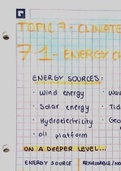 TOPIC 7 - CLIMATE
7.1 - ENERGY C
ENERGY SOURCES:
· Wind energy
· Solar energy
· Hydroelectricity
· oil platform
· Wav
· Tid
· Geo
ON A DEEPER LEVEL...
ENERGY SOURCE
RENEWABLE/NO